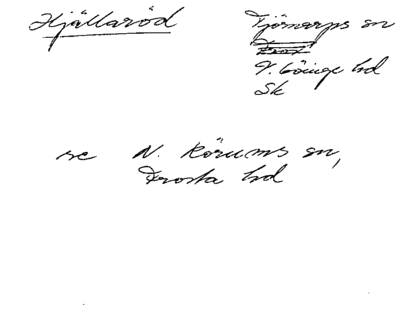 Hjällaröd
Tjörnarps sn
V. Göinge hd
Sk
se N. Rörums sn,
Frosta hd